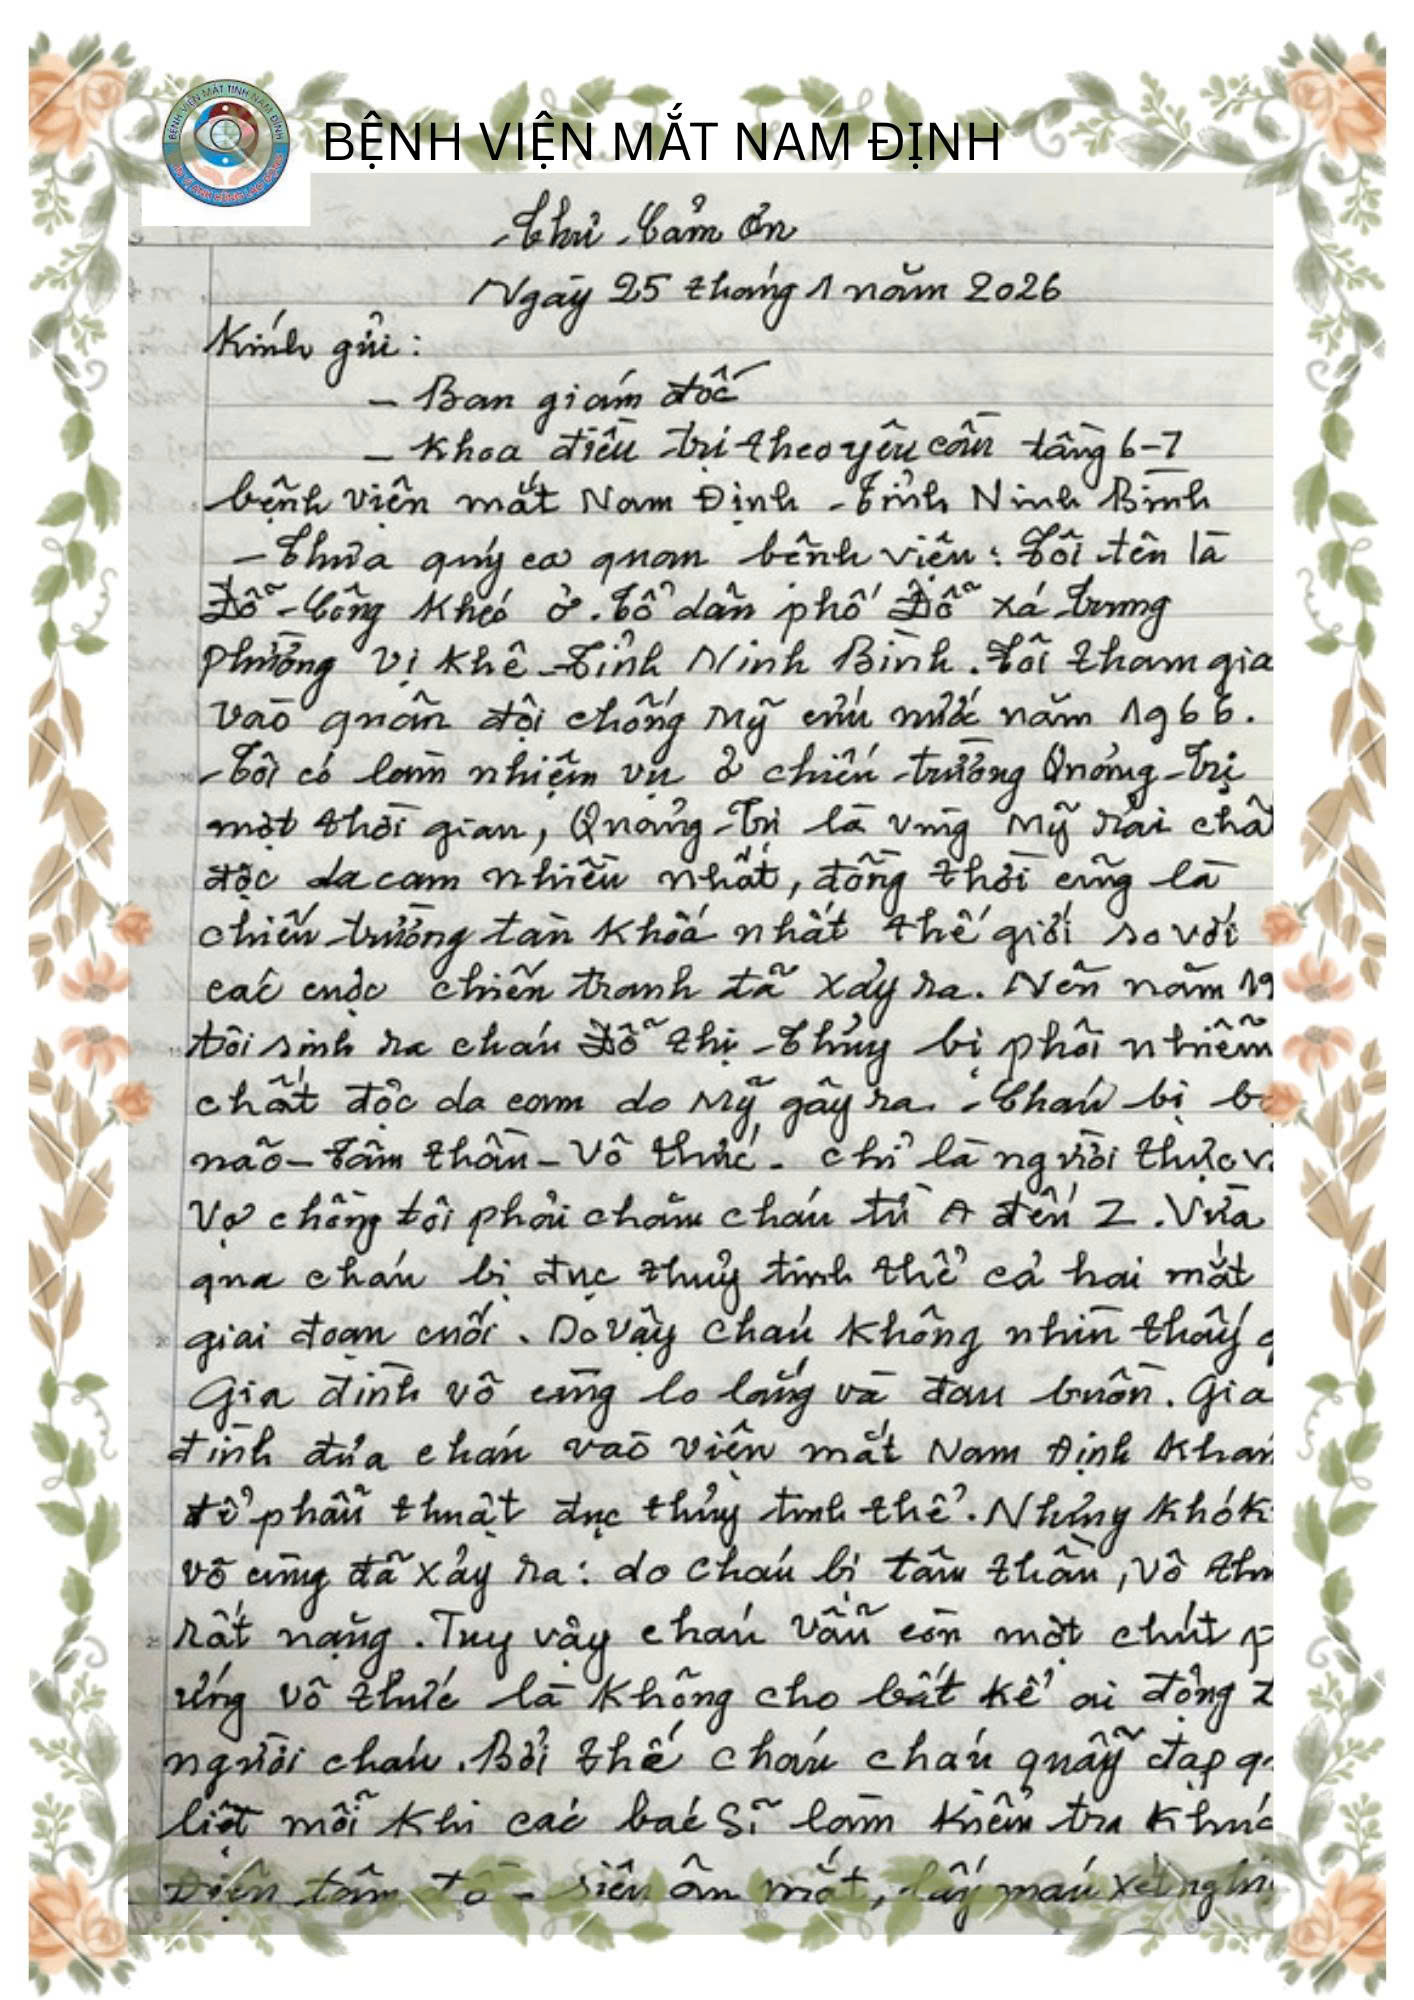 BỆNH VIỆN MẮT TỈNH NAM ĐỊNH
ĐƠN VỊ ANH HÙNG LAO ĐỘNG
BỆNH VIỆN MẮT NAM ĐỊNH
Thư Cảm Ơn
Ngày 25 tháng 1 năm 2026
Kính gửi:
- Ban giám đốc
- Khoa điều trị theo yêu cầu tầng 6-7
bệnh viện mắt Nam Định - Tỉnh Ninh Bình
- Thưa quý cơ quan bệnh viện: Tôi tên là
Đỗ Công Kheó ở. Tổ dân phố Đỗ xá Trung
phường Vị Khê - Tỉnh Ninh Bình. Tôi tham gia
vào quân đội chống Mỹ cứu nước năm 1966.
Tôi có làm nhiệm vụ ở chiến trường Quảng Trị
một thời gian, Quảng Trị là vùng Mỹ rải chấ
độc da cam nhiều nhất, đồng thời cũng là
chiến trường tàn khốc nhất thế giới so với
các cuộc chiến tranh đã xảy ra. Nên năm 19
tôi sinh ra cháu Đỗ Thị Thủy bị phơi nhiễm
chất độc da cam do Mỹ gây ra. Cháu bị b
não - Tâm thần - Vô thức. chỉ là người thực v
Vợ chồng tôi phải chăm cháu từ A đến Z. Vừa
qua cháu bị đục thuỷ tinh thể cả hai mắt
giai đoạn cuối. Do vậy cháu không nhìn thấy
Gia đình vô cùng lo lắng và đau buồn. Gia
đình đưa cháu vào viện mắt Nam Định khám
để phẫu thuật đục thủy tinh thể. Những khó k
vô cùng đã xảy ra: do cháu bị tâm thần, vô th
rất nặng. Tuy vậy cháu vẫn còn một chút p
ứng vô thức là không cho bất kể ai động
người cháu. Bởi thế cháu cháu quẫy đạp q
liệt mỗi khi các bác sĩ làm kiểm tra khúc
Điện tâm đồ - siêu âm mắt, lấy máu xét nghi